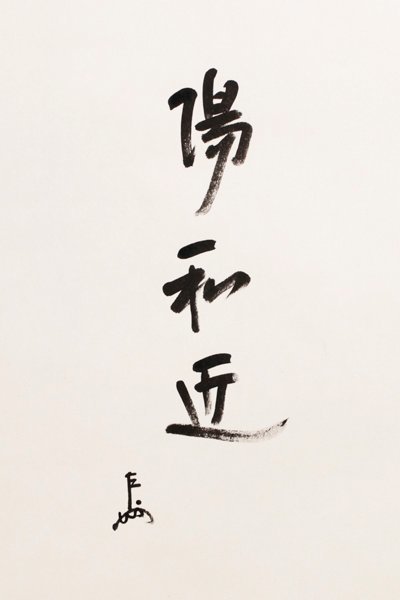 陽和近